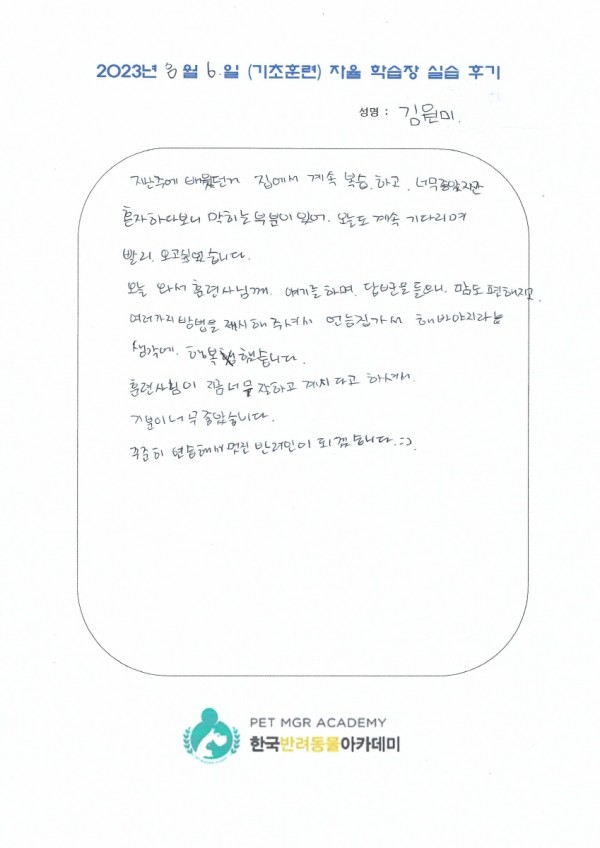 2023년 8월 6.일 (기초훈련) 자율 학습장 실습 후기
성명 : 김원미.
지난주에 배웠던거 집에서 계속 복습.하고, 너무좋았지만
혼자하다보니 막히는부분이 있어. 오늘도 계속 기다리며
빨리. 오고싶었습니다.
오늘 와서 훈련사님께. 얘기를하며, 답변을 들으니. 맘도 편해지고.
여러가지방법을 제시해주셔서 언능집가서 해봐야지라는
생각에. 행복했습니다.
훈련사님이 지금너무 잘하고 계시다고 하셔서.
기분이너무 좋았습니다.
꾸준히 연습해서멋진 반려인이 되겠습니다.:-)
PET MGR ACADEMY
한국반려동물아카데미